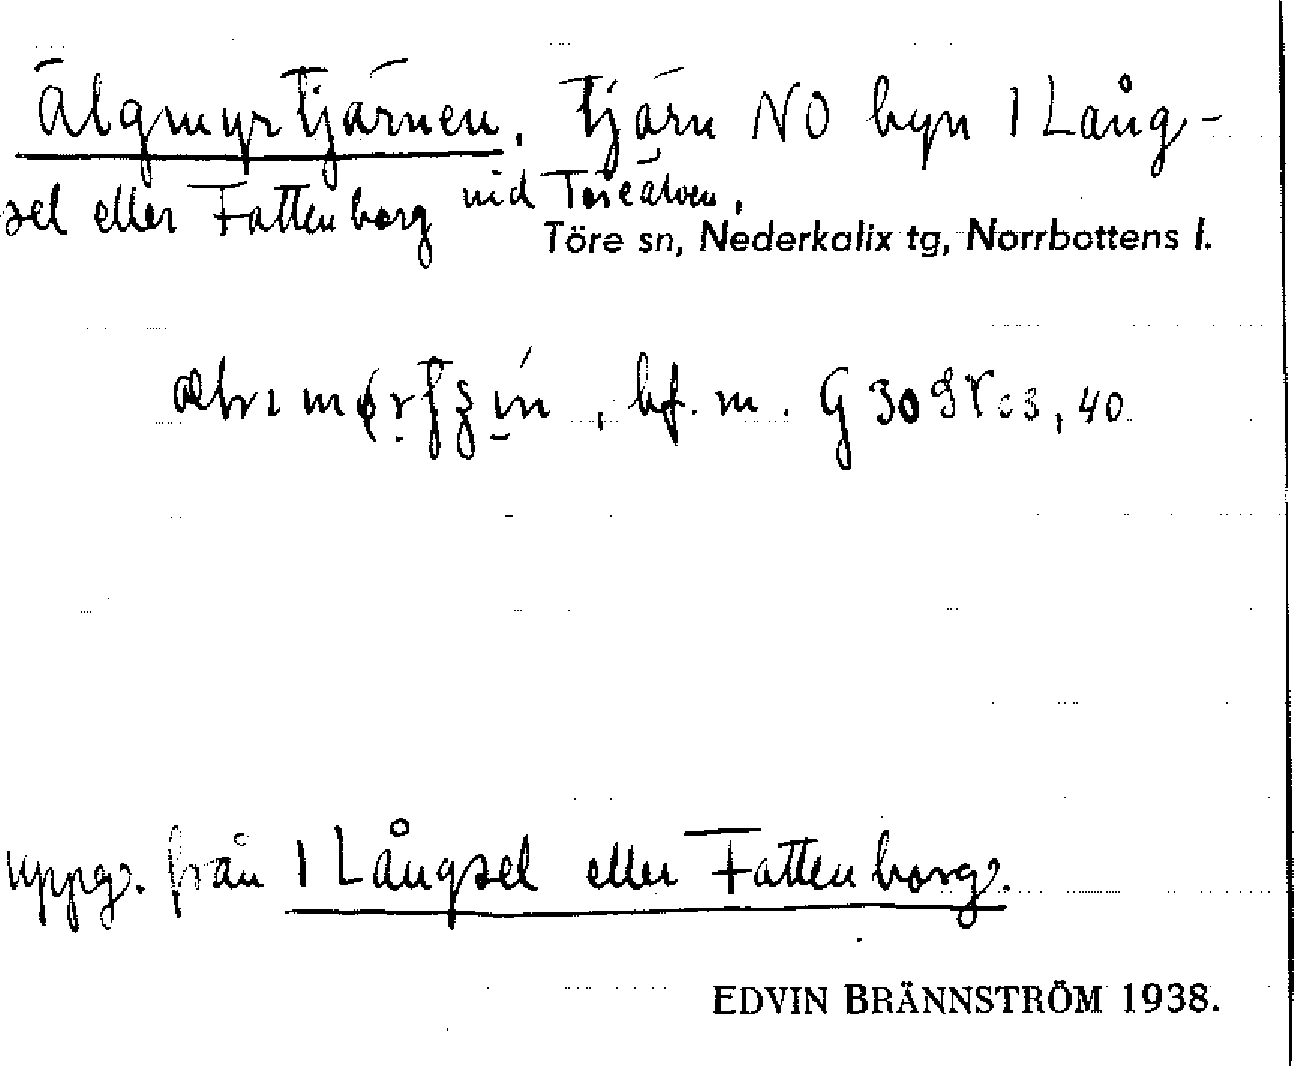 Älgmyrtjärnen. Tjärn NO byn 1 Lång-
sel eller Fattenborg vid Töreälven.
Töre sn, Nederkalix tg, Norrbottens l.
bf. m. G 30
uppg. från 1 Långsel eller Fattenborg.
EDVIN BRÄNNSTRÖM 1938.